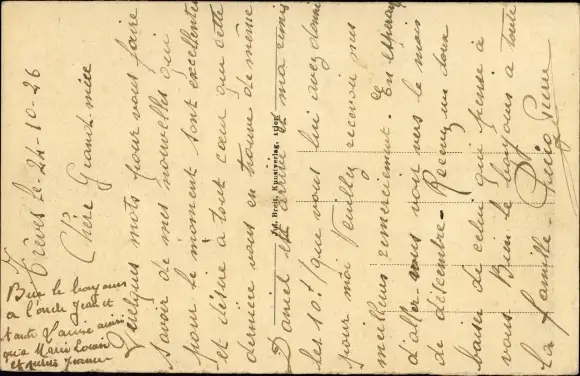 Trèves le 24-10-26
Chère Grand-mère
Quelques mots pour vous faire
savoir de mes nouvelles qui
pour le moment sont excellentes
et désire à tout cœur que cette
dernière vous en trouve de même
Daniel est arrivé et m'a remis
les 10f que vous lui avez donné
pour moi Veuillez recevoir mes
meilleurs remerciement. En esperant
d'aller vous voir vers le mois
de décembre - Recevez un doux
baiser de celui qui pense à
vous Bien le bonjour à toute
la famille
Bien le bonjour
a l'oncle Jean et
tante ainsi
que Marie
et
Jos. Breit, Kunstverlag, Trier